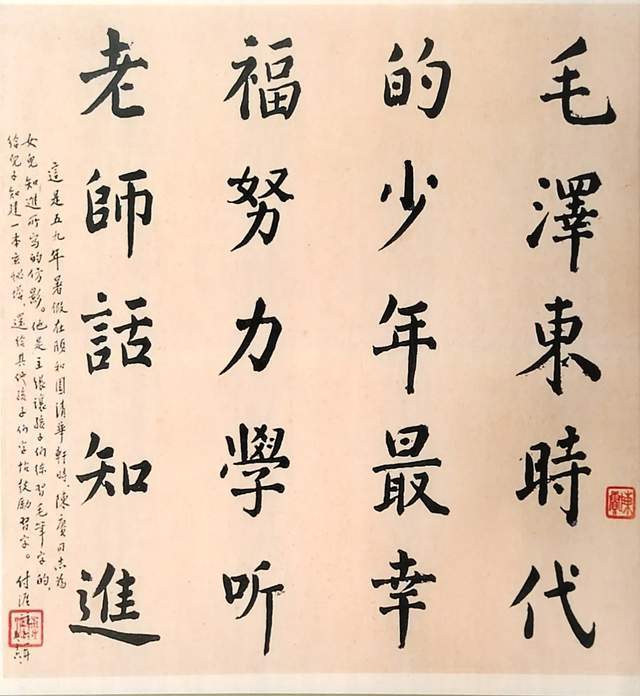 毛澤東時代
的少年最幸
福努力學听
老師話知進
這是五九年暑假在頤和園清華軒時陳賡同志为
女兒知進所寫的仿影。他是主張讓孩子们練習毛筆字的，
给兒子知建一本玄秘塔，還给其他孩子们字帖鼓励習字。付涯